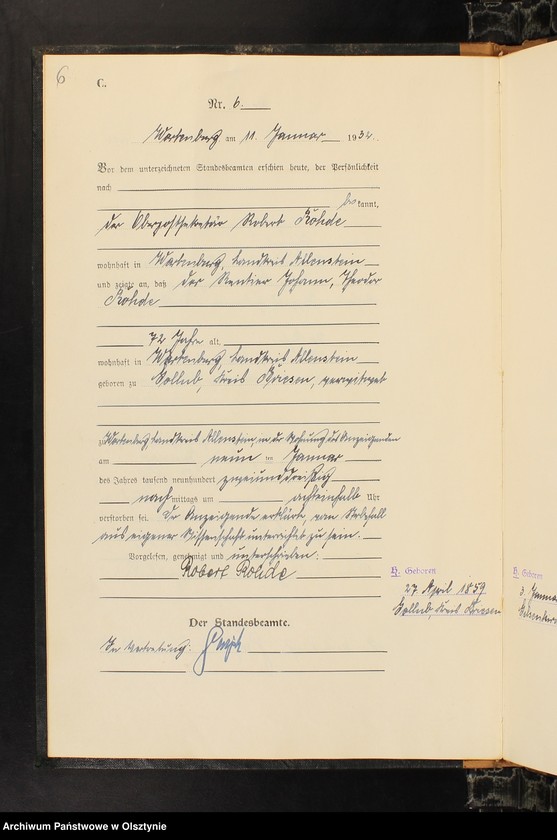 6
C.
Nr. 6.
Wartenburg am 11 Januar 1932.
Vor dem unterzeichneten Standesbeamten erschien heute, der Persönlichkeit
nach
be kannt,
der Oberpostsekretär Robert Rohde
wohnhaft in Wartenburg, Landkreis Allenstein
und zeigte an, daß der Rentier Johann, Theodor
Rohde
72 Jahre alt,
wohnhaft in Wartenburg, Landkreis Allenstein
geboren zu Sollub, Kreis Briesen,
zu Wartenburg, Landkreis Allenstein, in der Wohnung des Anzeigenden
am neun ten Januar
des Jahres tausend neunhundert zweiunddreißig
nach mittags um achteinhalb Uhr
verstorben sei. Der Anzeigende erklärte, vom Sterbefall
aus eigener Wissenschaft unterrichtet zu sein.
Vorgelesen, genehmigt und unterschrieben.
Robert Rohde
H. Geboren
27 April 1859
Sollub, Kreis Briesen
H. Geboren
3. Januar
Der Standesbeamte.
In Vertretung:
Archiwum Państwowe w Olsztynie